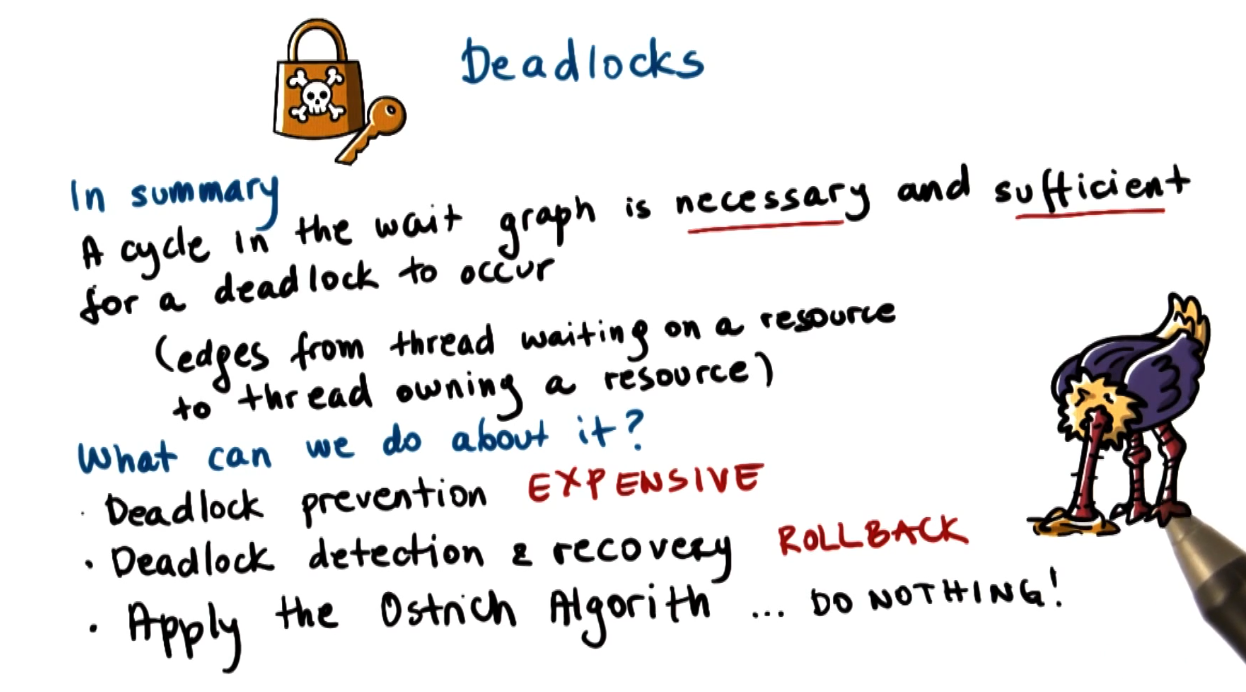 Deadlocks
In summary
A cycle in the wait graph is necessary and sufficient
for a deadlock to occur
(edges from thread waiting on a resource
to thread owning a resource)
What can we do about it?
· Deadlock prevention EXPENSIVE
· Deadlock detection & recovery ROLLBACK
· Apply the Ostrich Algorith ... DO NOTHING!